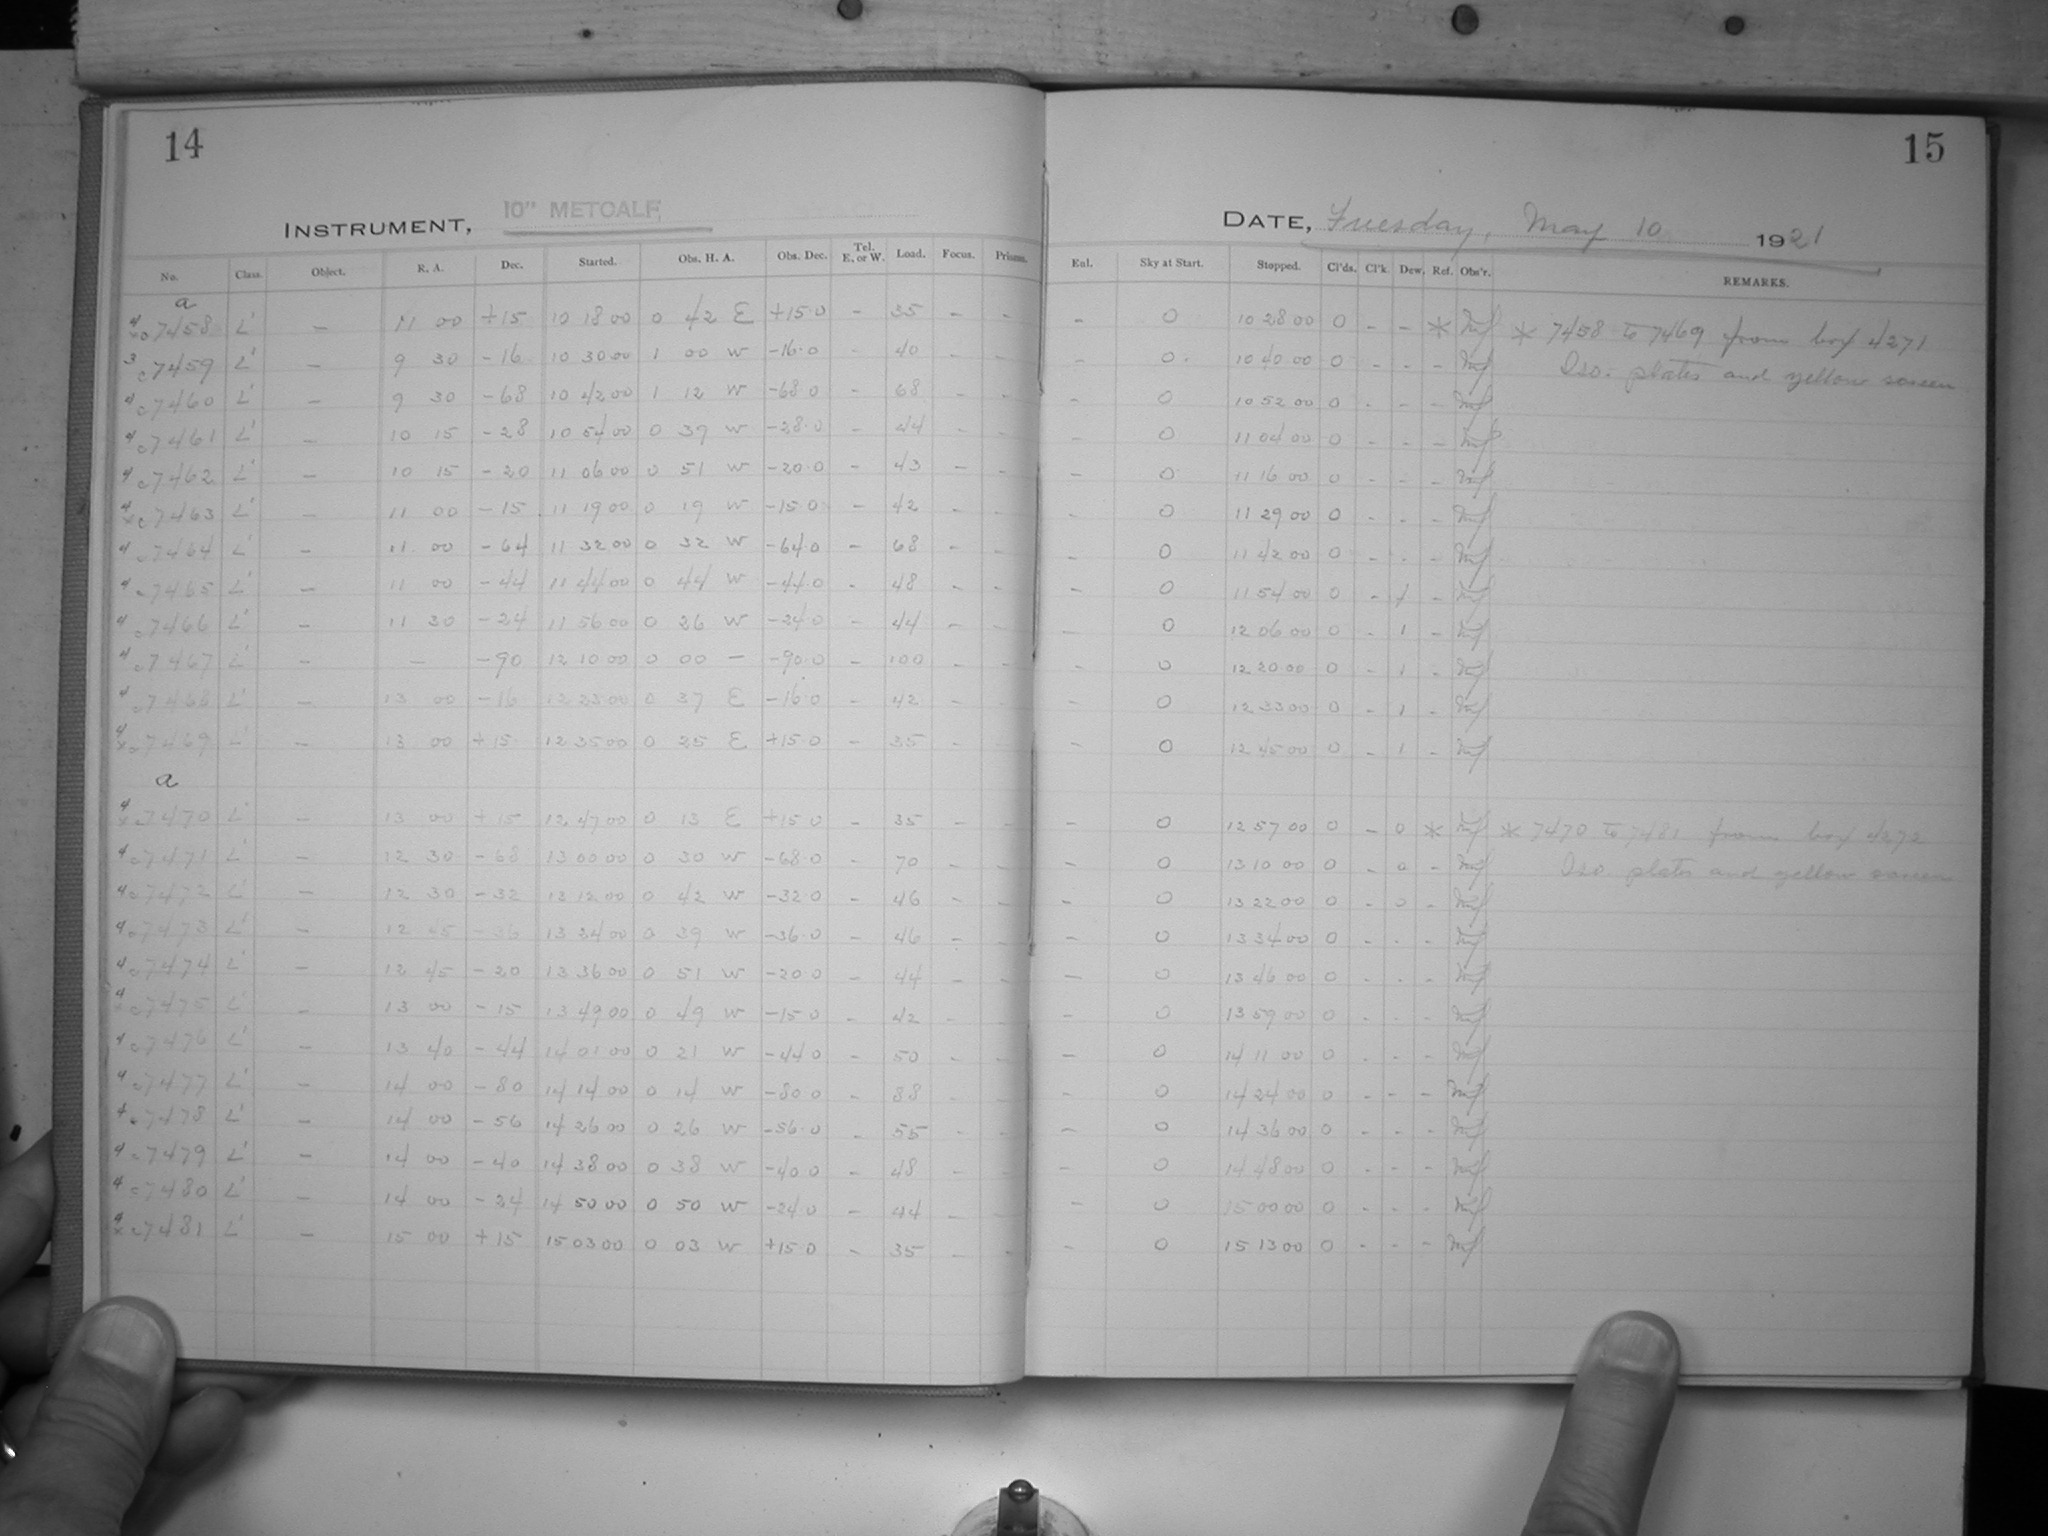 14
INSTRUMENT, 10" METCALF,
No. Class. Object. R. A. Dec. Started. Obs. H. A. Obs. Dec. Tel. E. or W. Load. Focus. Prisms.
a
7458 L' - 11 00 +15 10 18 00 0 42 E +15.0 - 35 - -
7459 L' - 9 30 -16 10 30 00 1 00 W -16.0 - 40 - -
7460 L' - 9 30 -68 10 42 00 1 12 W -68.0 - 68 - -
7461 L' - 10 15 -28 10 54 00 0 39 W -28.0 - 44 - -
7462 L' - 10 15 -20 11 06 00 0 51 W -20.0 - 43 - -
7463 L' - 11 00 -15 11 19 00 0 19 W -15.0 - 42 - -
7464 L' - 11 00 -64 11 32 00 0 32 W -64.0 - 68 - -
7465 L' - 11 00 -44 11 44 00 0 44 W -44.0 - 48 - -
7466 L' - 11 30 -24 11 56 00 0 26 W -24.0 - 44 - -
7467 L' - - -90 12 10 00 0 00 - -90.0 - 100 - -
7468 L' - 13 00 -16 12 23 00 0 37 E -16.0 - 42 - -
7469 L' - 13 00 +15 12 35 00 0 25 E +15.0 - 35 - -
a
7470 L' - 13 00 +15 12 47 00 0 13 E +15.0 - 35 - -
7471 L' - 12 30 -68 13 00 00 0 30 W -68.0 - 70 - -
7472 L' - 12 30 -32 13 12 00 0 42 W -32.0 - 46 - -
7473 L' - 12 45 -36 13 24 00 0 39 W -36.0 - 46 - -
7474 L' - 12 45 -20 13 36 00 0 51 W -20.0 - 44 - -
7475 L' - 13 00 -15 13 49 00 0 49 W -15.0 - 42 - -
7476 L' - 13 40 -44 14 01 00 0 21 W -44.0 - 50 - -
7477 L' - 14 00 -80 14 14 00 0 14 W -80.0 - 88 - -
7478 L' - 14 00 -56 14 26 00 0 26 W -56.0 - 55 - -
7479 L' - 14 00 -40 14 38 00 0 38 W -40.0 - 48 - -
7480 L' - 14 00 -24 14 50 00 0 50 W -24.0 - 44 - -
7481 L' - 15 00 +15 15 03 00 0 03 W +15.0 - 35 - -
15
DATE, Tuesday, May 10 1921
Enl. Sky at Start. Stopped. Cl'ds. Cl'k. Dew. Ref. Obs'r. REMARKS.
- 0 10 28 00 0 - - * * 7458 to 7469 from box 4271
- 0 10 40 00 0 - - - Iso. plates and yellow screen
- 0 10 52 00 0 - - -
- 0 11 04 00 0 - - -
- 0 11 16 00 0 - - -
- 0 11 29 00 0 - - -
- 0 11 42 00 0 - - -
- 0 11 54 00 0 - 1 -
- 0 12 06 00 0 - 1 -
- 0 12 20 00 0 - 1 -
- 0 12 33 00 0 - 1 -
- 0 12 45 00 0 - 1 -
- 0 12 57 00 0 - 0 * * 7470 to 7481 from box 4272
- 0 13 10 00 0 - 0 - Iso. plates and yellow screen
- 0 13 22 00 0 - 0 -
- 0 13 34 00 0 - - -
- 0 13 46 00 0 - - -
- 0 13 59 00 0 - - -
- 0 14 11 00 0 - - -
- 0 14 24 00 0 - - -
- 0 14 36 00 0 - - -
- 0 14 48 00 0 - - -
- 0 15 00 00 0 - - -
- 0 15 13 00 0 - - -